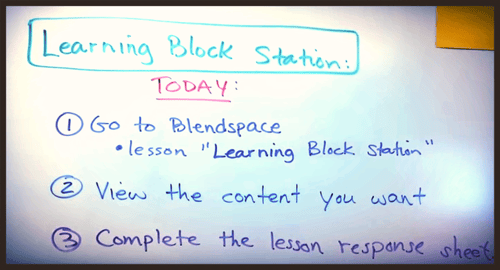 Learning Block Station:
TODAY:
① Go to Blendspace
• lesson "Learning Block Station"
② View the content you want
③ Complete the lesson response sheet